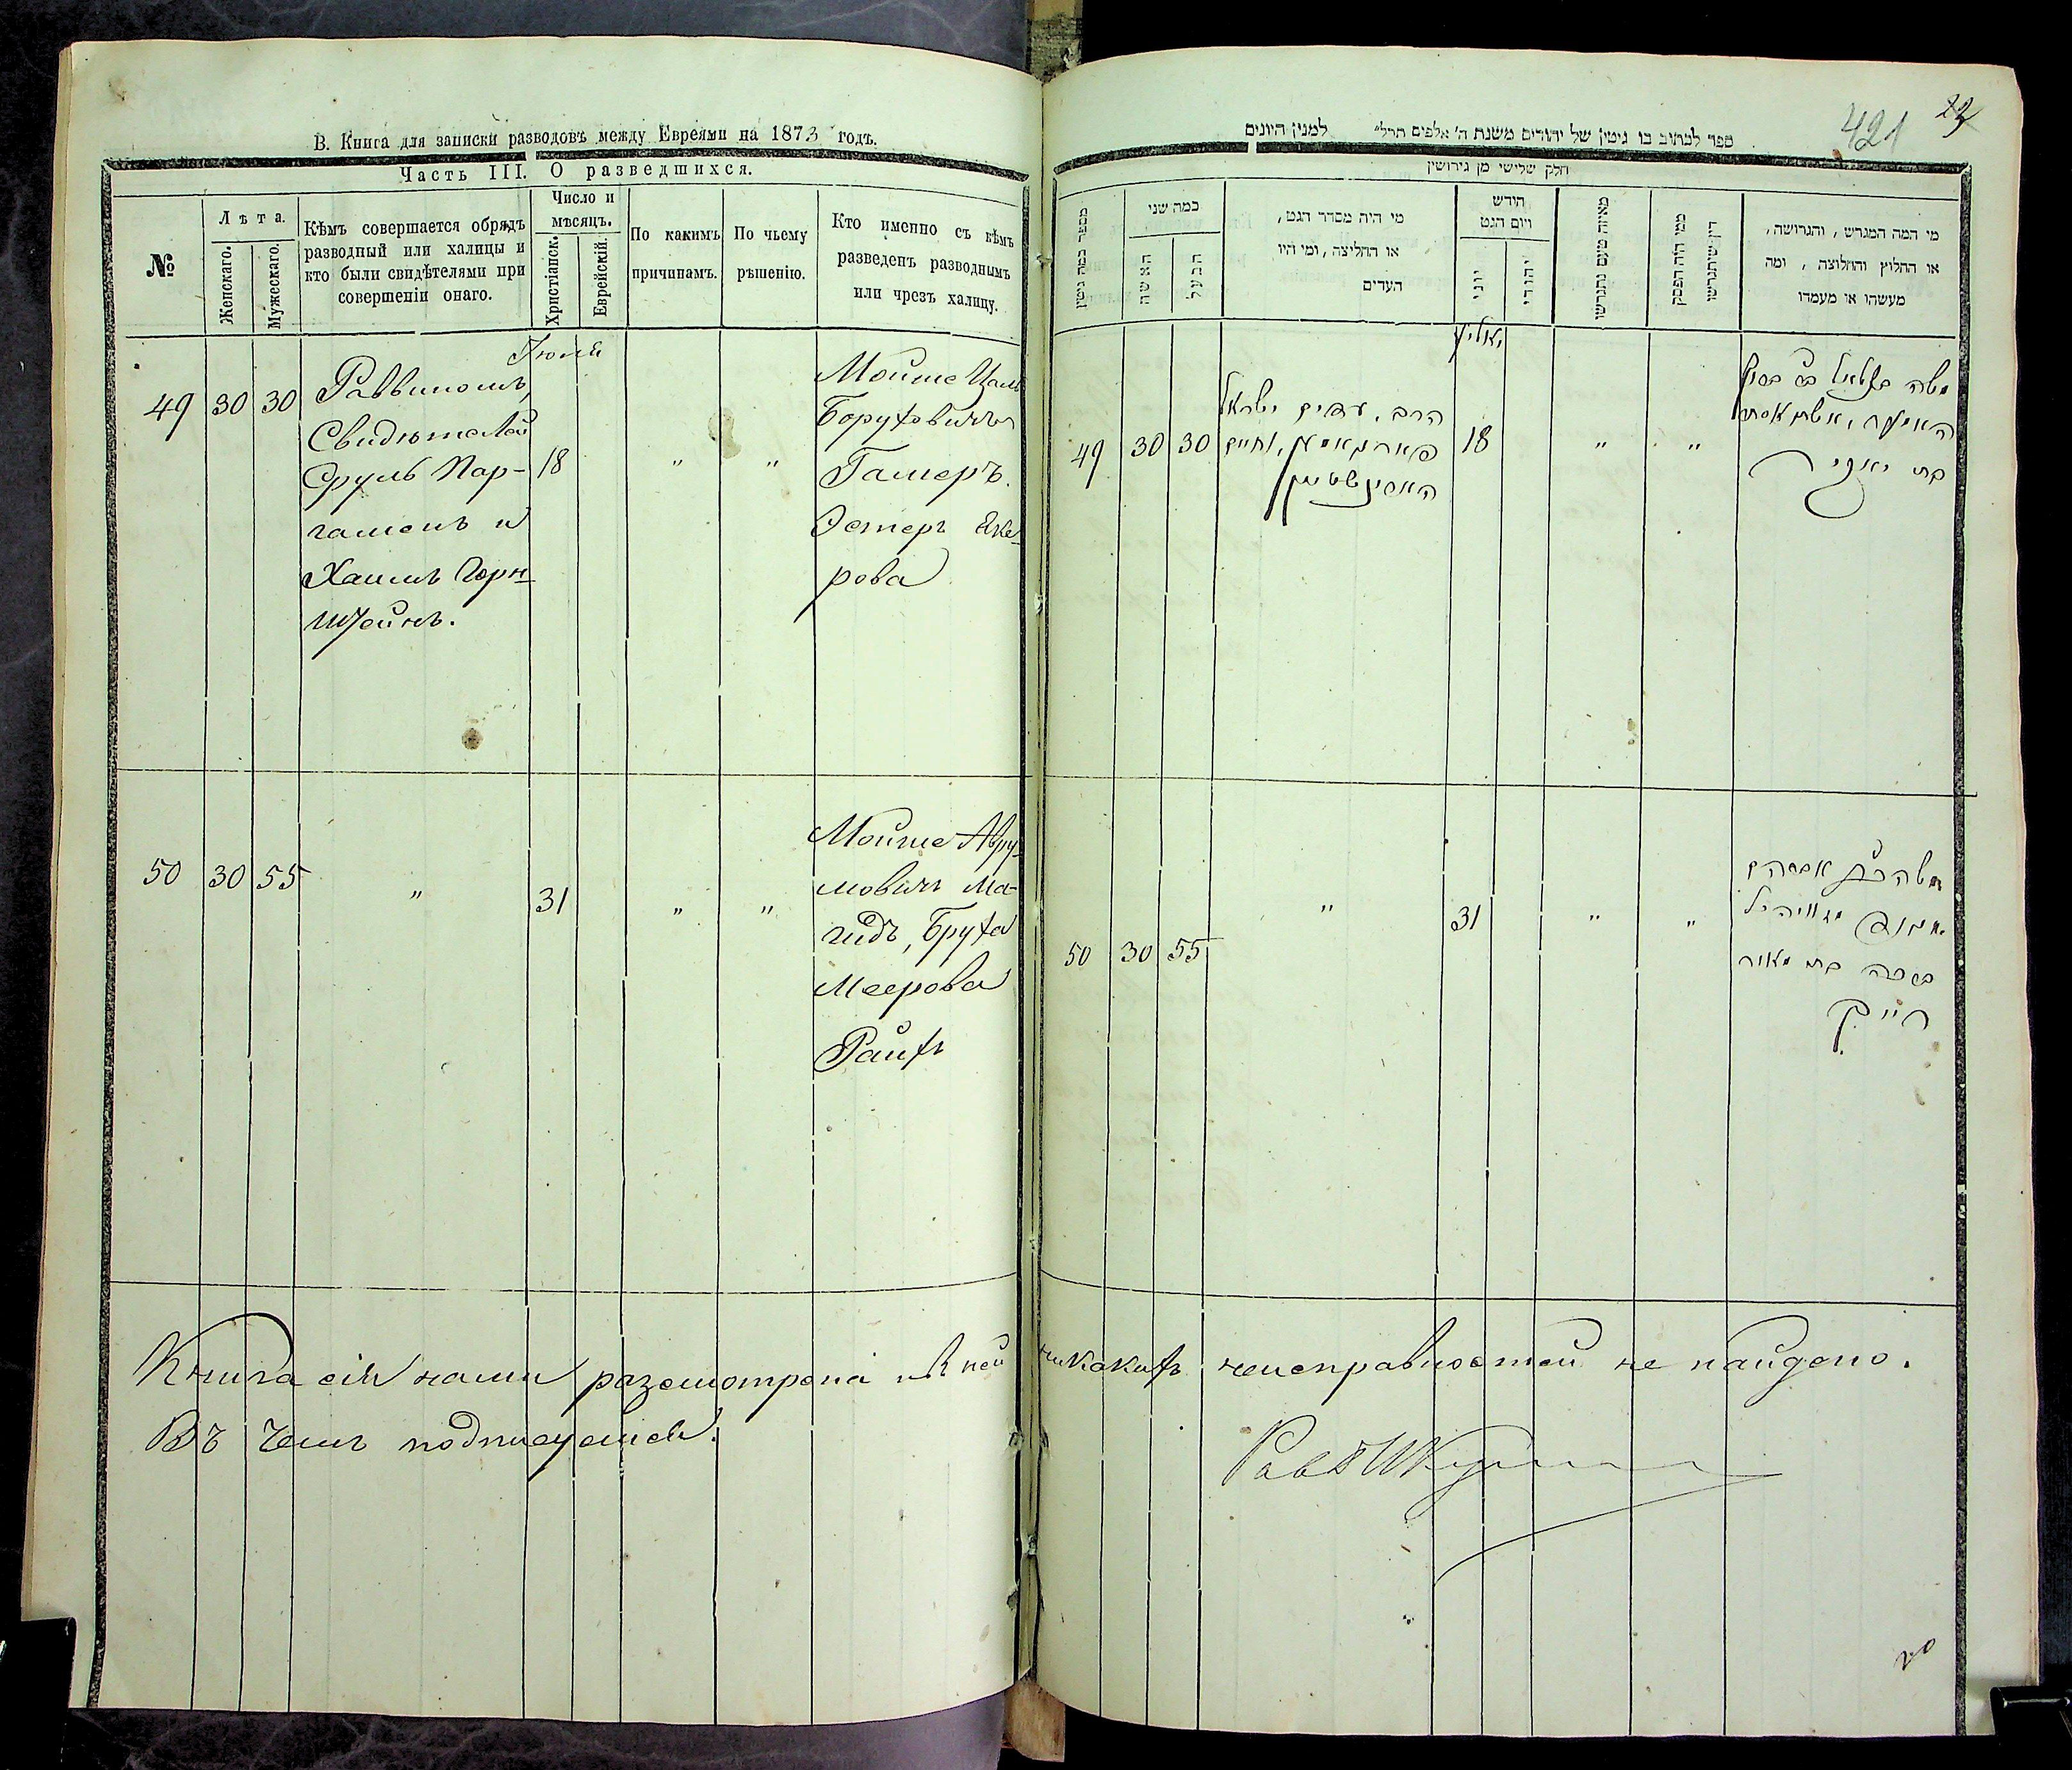 В. Книга для записки разводовъ между Евреями на 1873 годъ.
Часть III. О разведшихся.
№
Лѣта.
Женскаго.
Мужескаго.
Кѣмъ совершается обрядъ
разводный или халицы и
кто были свидѣтелями при
совершеніи онаго.
Число и
мѣсяцъ.
Христіанск.
Еврейскій.
По какимъ
причинамъ.
По чьему
рѣшенію.
Кто именно съ кѣмъ
разведенъ разводнымъ
или чрезъ халицу.
Іюля
49 30 30
Раввиномъ,
Свидѣтелей
Сруль Пар-
гаменъ и
Хаимъ Горн-
штейнъ.
18
"
"
Мойше Цаль
Боруховичъ
Гамеръ.
Эстеръ Янке-
рова
50 30 55
"
31
"
"
Мойше Авру-
мовичъ Ма-
гидъ, Бруха
Меерова
Райхъ
Книга сія нами разсмотрена и въ ней
Въ чемъ подписуемся.
421
ספר לכתוב בו גיטין של יהודים משנת ה' אלפים תרל" למנין היונים
חלק שלישי מן גירושין
מספר כמה גיטין
כמה שני
האשה
הבעל
מי היה מסדר הגט,
או החליצה, ומי היו
העדים
חידש
ויום הגט
יוני
יהודי
מאיזה טעם נתגרשו
ממי היה הפסק
דין שיתגרשו
מי המה המגרש, והגרושה,
או החלוץ והחלוצה, ומה
מעשהו או מעמדו
יאליע
49 30 30
הרב, עדים ישראל
פארגאמען, וחיים
הארינשטיין
18
"
"
משה בצלאל בר ברוך
האמער, אשתו אסתר
בת יאנקי
50 30 55
"
31
"
"
משה ב"ר אברהם
ברכה בת מאיר
רייך
никакихъ неисправностей не найдено.
Равв
20